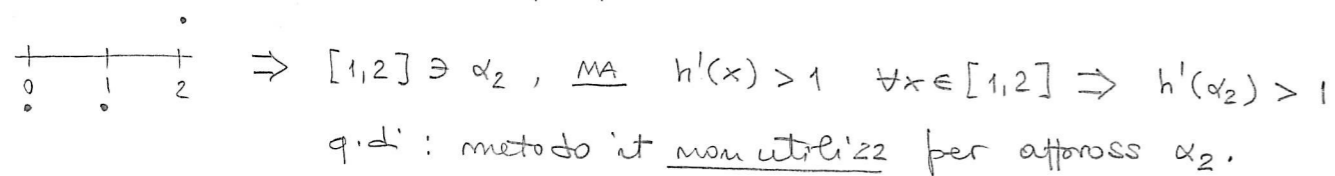 ⇒ [1,2] ∋ α₂ , MA h'(x) > 1 ∀x ∈ [1,2] ⇒ h'(α₂) > 1
0 1 2
q.di : metodo it non utilizz per appross α₂.